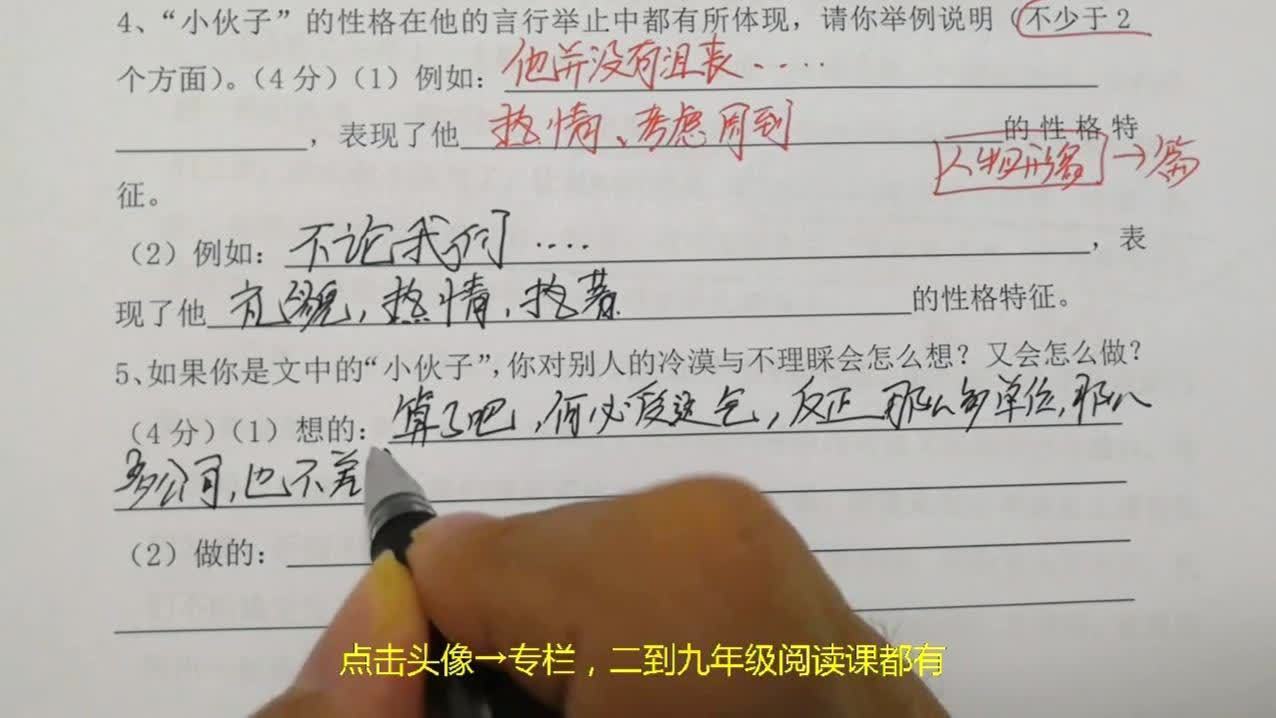 4、“小伙子”的性格在他的言行举止中都有所体现，请你举例说明（不少于2
个方面）。（4分）（1）例如：他并没有沮丧....
，表现了他热情、考虑周到的性格特
人物形象→
征。
（2）例如：不论我们....，表
现了他有礼貌，热情，执着的性格特征。
5、如果你是文中的“小伙子”，你对别人的冷漠与不理睬会怎么想？又会怎么做？
（4分）（1）想的：算了吧，何必受这气，反正那么多单位，那么
多公司，也不差
（2）做的：
点击头像→专栏，二到九年级阅读课都有